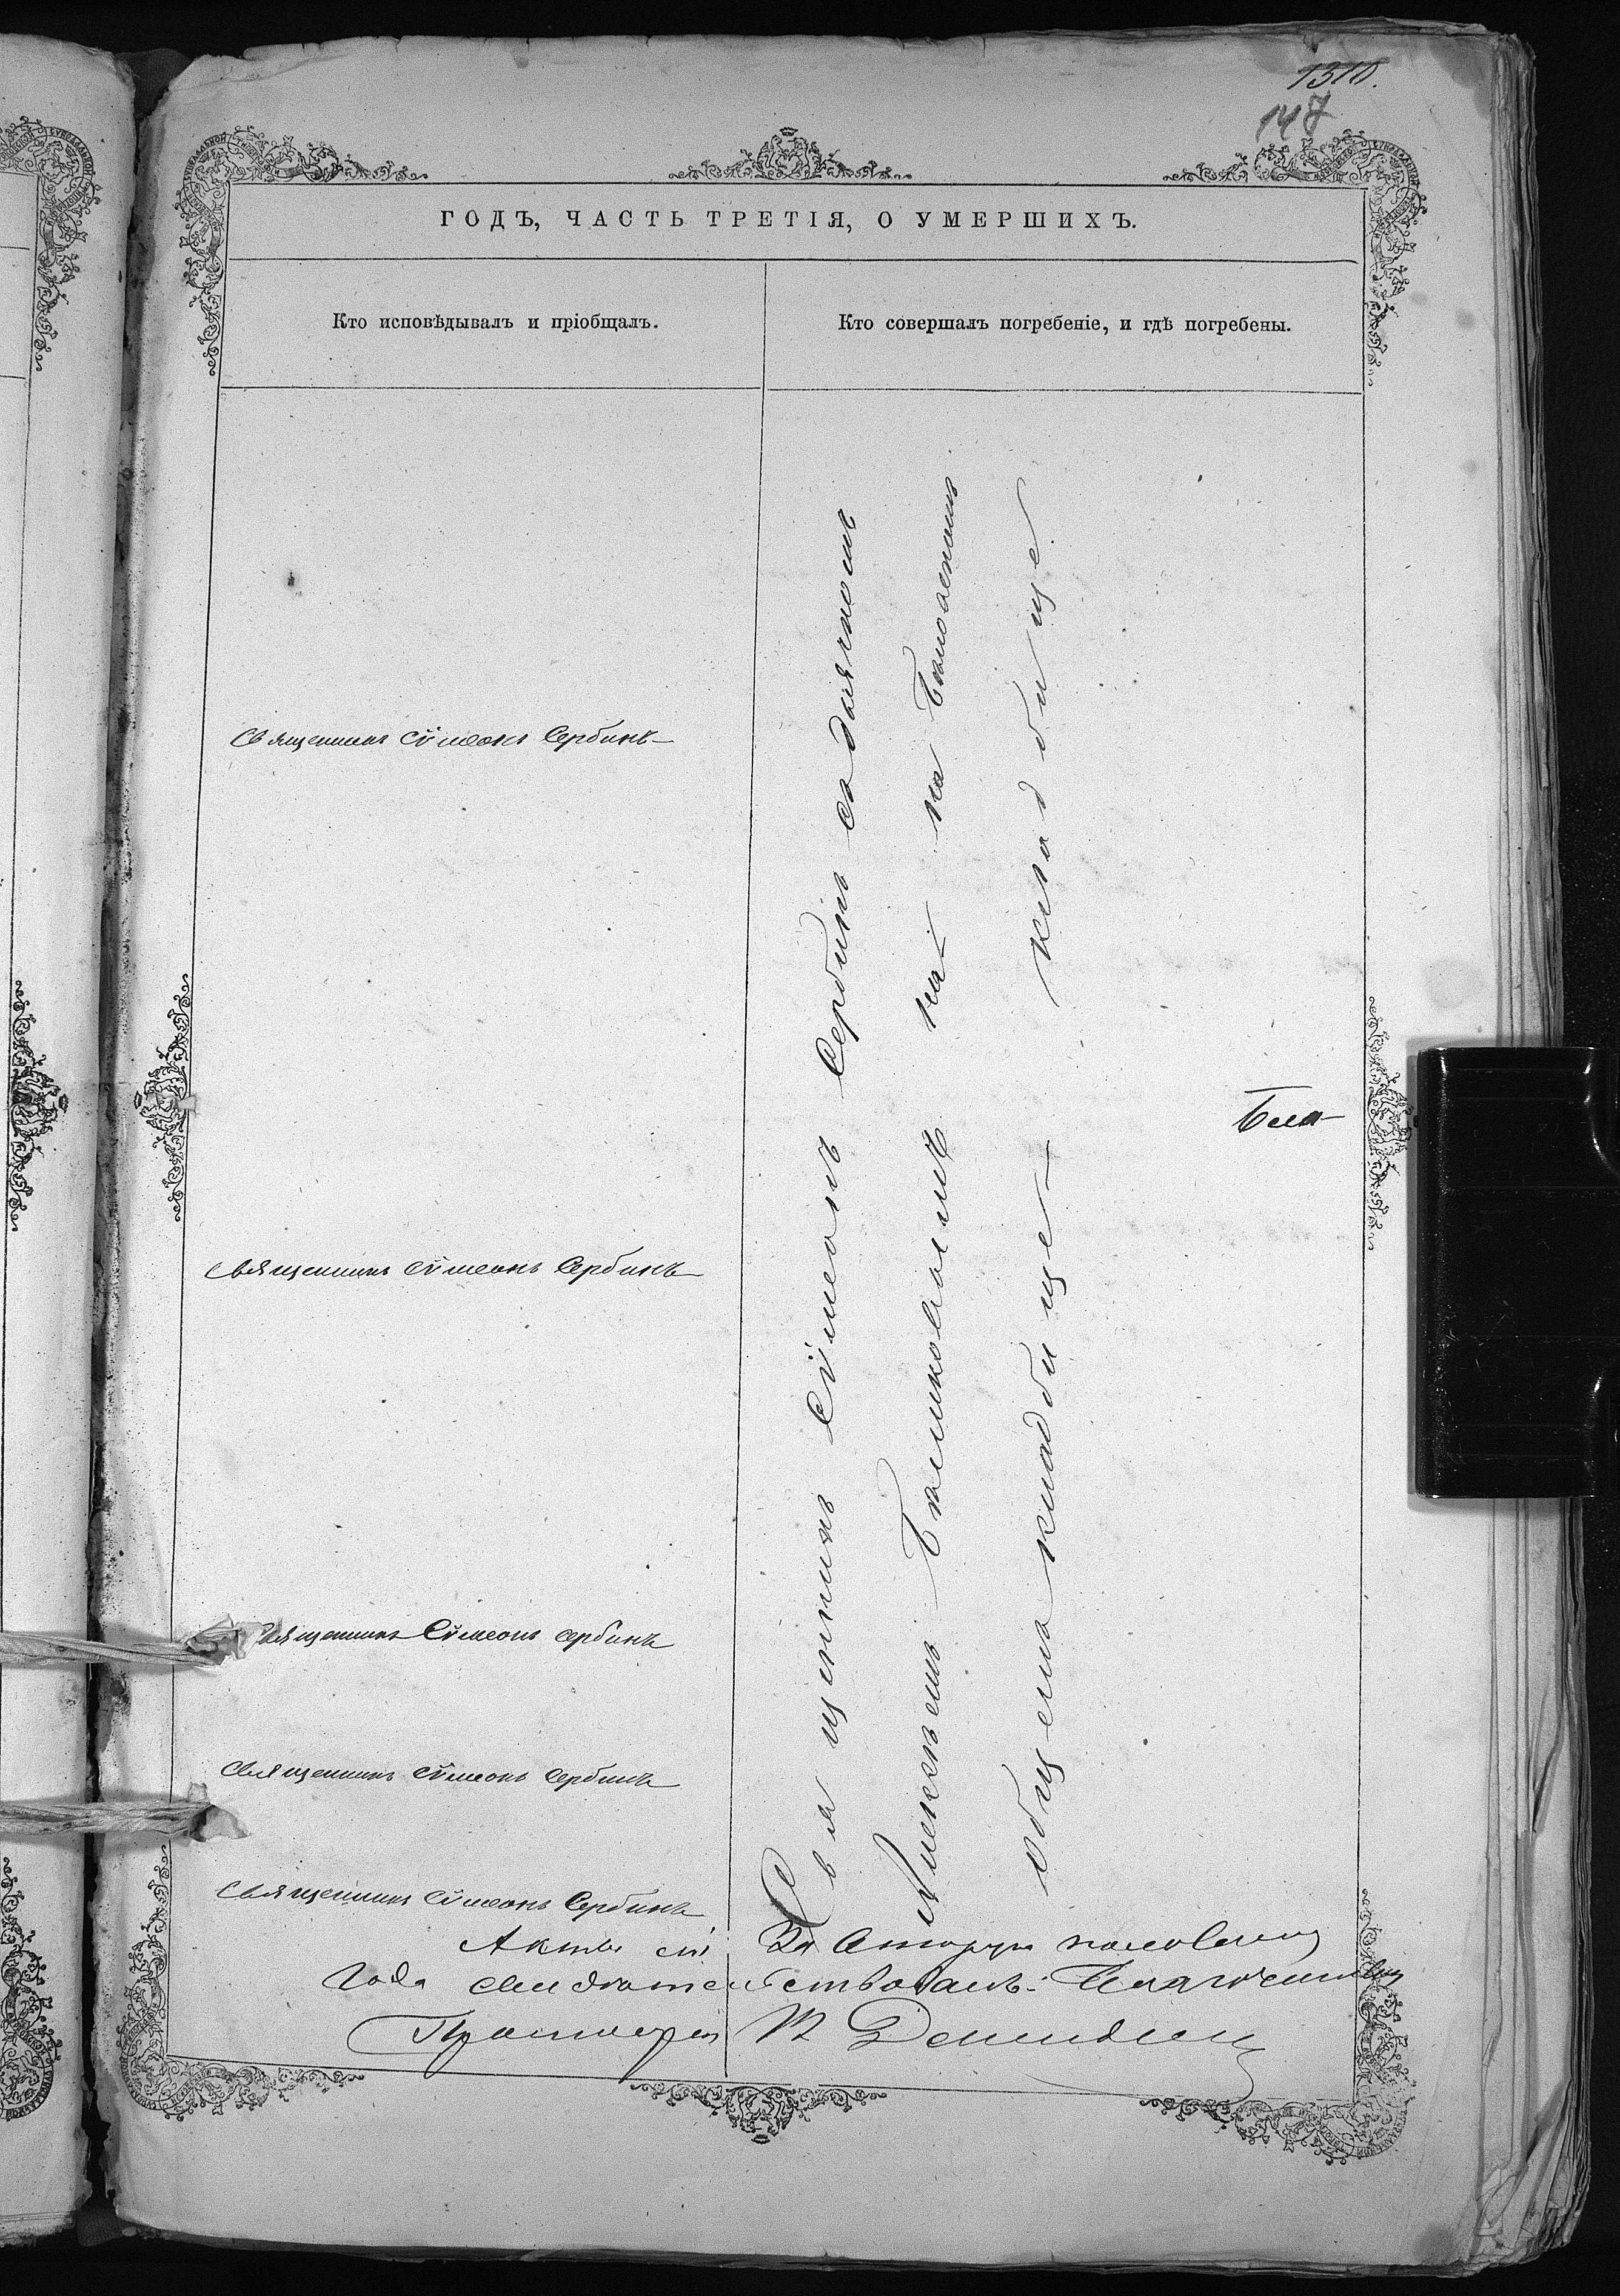 1310.
147
ГОДЪ, ЧАСТЬ ТРЕТІЯ, О УМЕРШИХЪ.
Кто исповѣдывалъ и пріобщалъ.
Кто совершалъ погребеніе, и гдѣ погребены.
Священникъ Сѵмеонъ Сербинъ
Священникъ Сѵмеонъ Сербинъ
Священникъ Сѵмеонъ Сербинъ
Священникъ Сѵмеонъ Сербинъ
Священникъ Сѵмеонъ Сербинъ
Священникъ Сѵмеонъ Сербинъ
на на
общемъ кладбище кладбище
Бла
Акты сіи за вторую половину
года свидѣтельствовалъ: Благочинный
Протоіерей